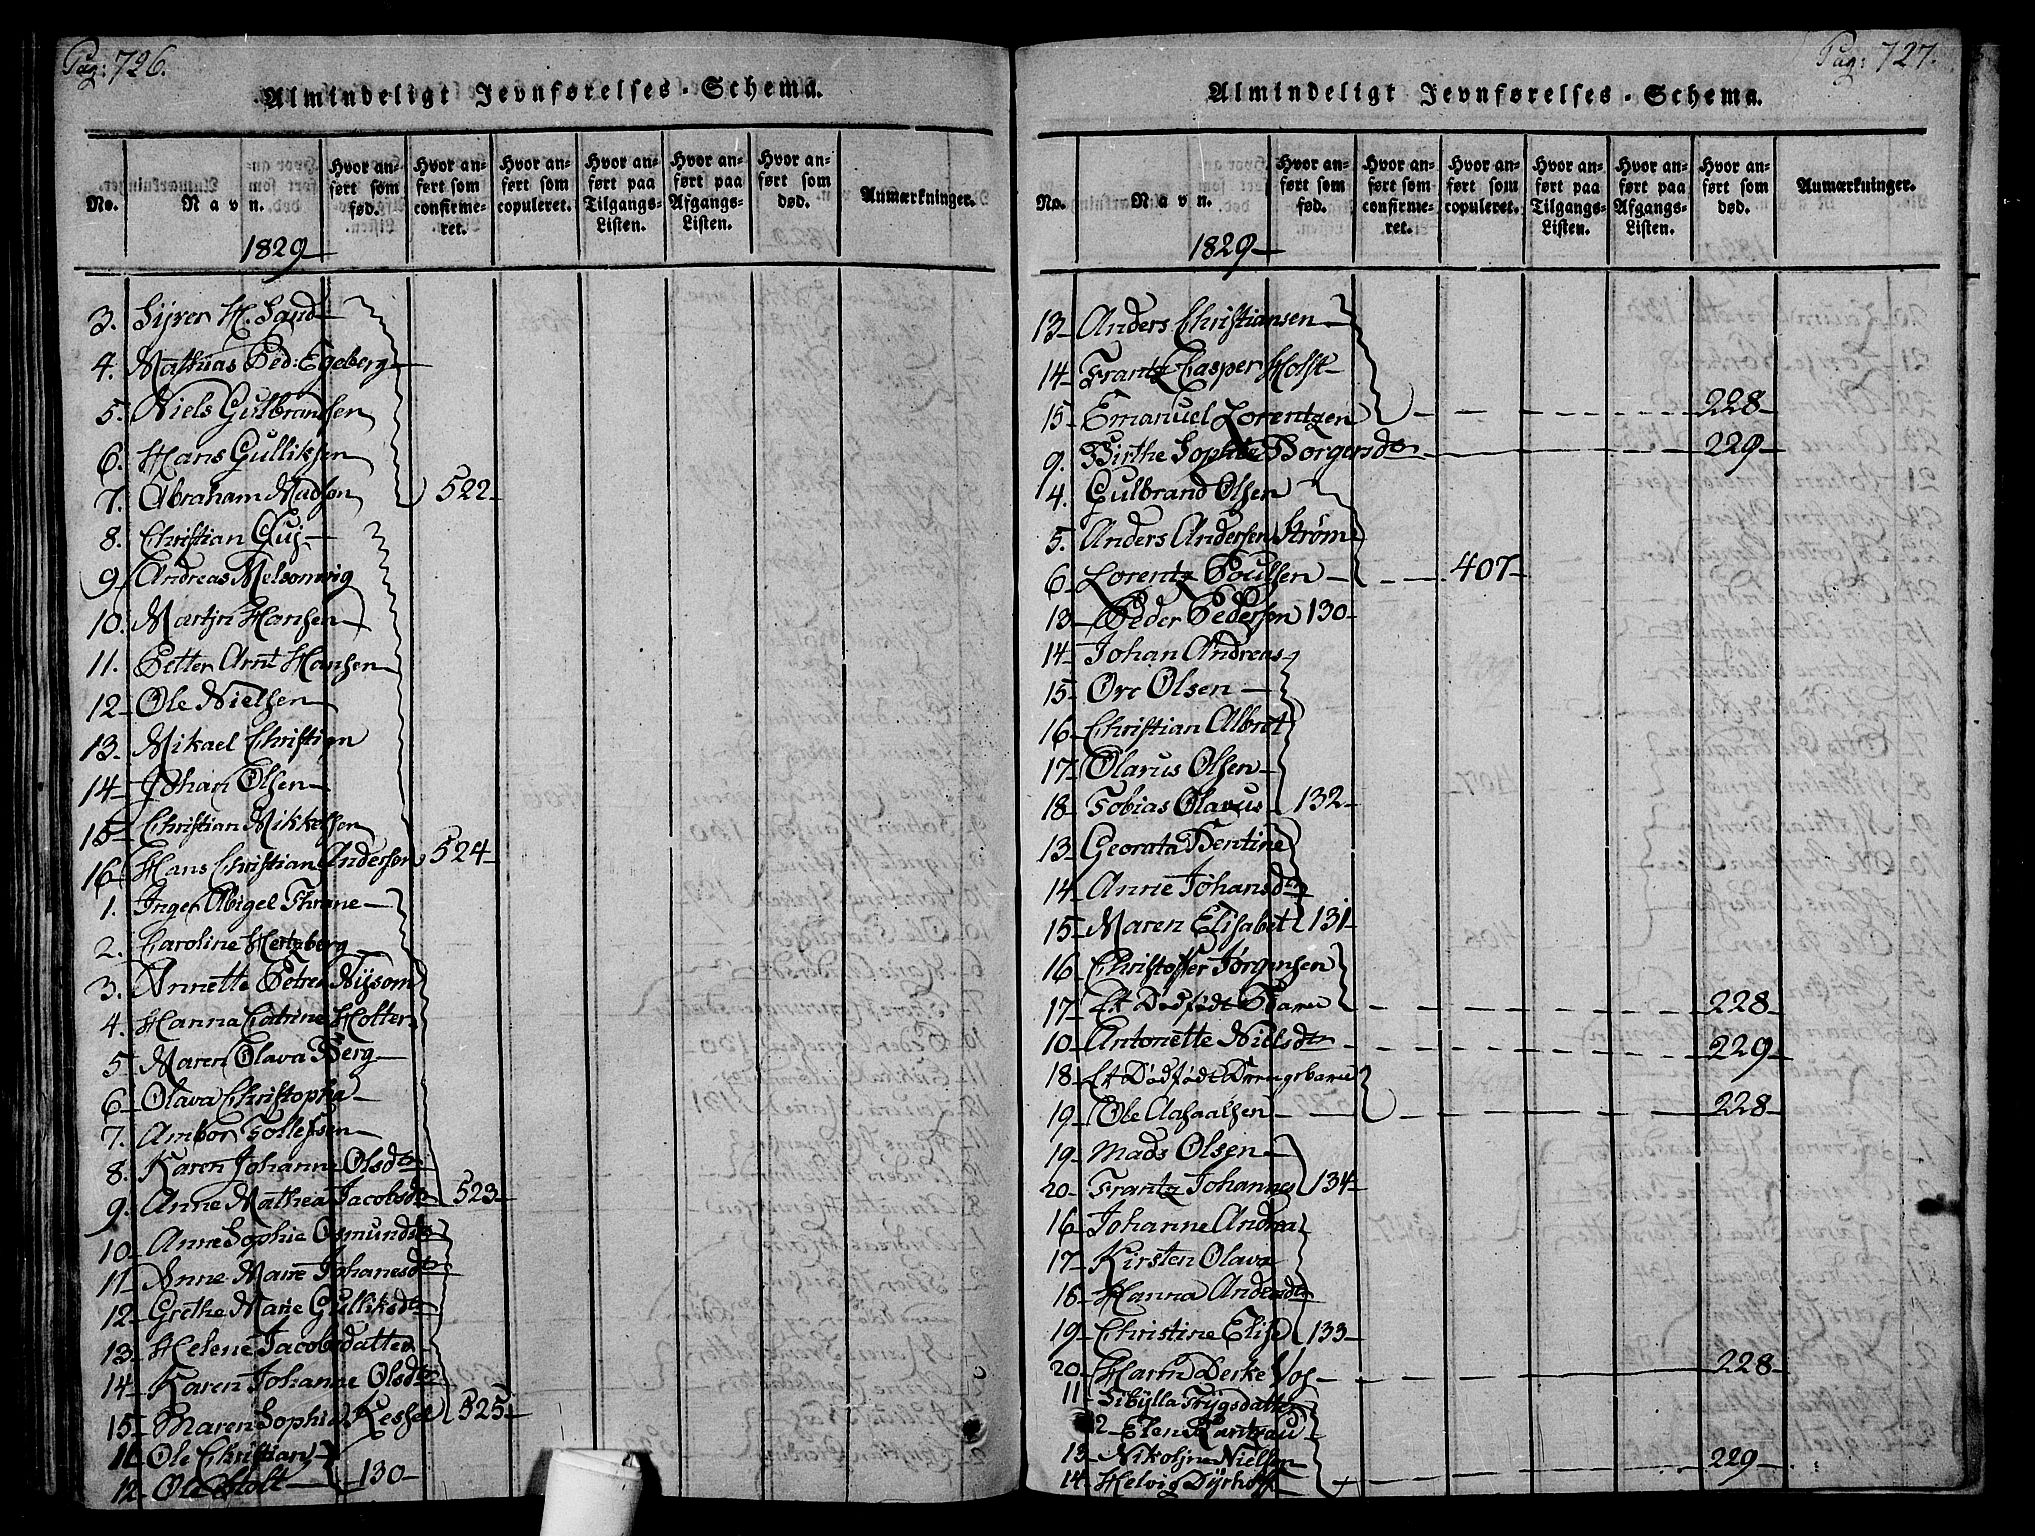 Pag: 726.
Almindeligt Jevnførelses-Schema.
No.
Navn.
Hvor anført som fød.
Hvor anført som confirmeret.
Hvor anført som copuleret.
Hvor anført paa Tilgangs-Listen.
Hvor anført paa Afgangs-Listen.
Hvor anført som død.
Anmærkninger.
1829
3. Sijver H. Sand
4. Mathias Ped: Egeberg
5. Niels Gulbrandsen
6. Hans Gulliksen
7. Abraham Madsen 522
8. Christian
9. Andreas Melsomvig
10. Martin Hansen
11. Petter Arnt Hansen
12 Ole Nielsen
13. Mikael Christian
14 Johan Olsen
15 Christian Mikkelsen
16 Hans Christian Andersen 524
1. Inger Abigel Thrane
2. Caroline Hertzberg
3. Annette Petrea
4. Hanna Catrine Holter
5. Maren Olava Berg
6 Olava Christopha
7. Ambor Tollefsen
8. Karen Johanne Olsdtr
9. Anne Mathea Jacobsdtr 523
10 Anne Sophie Osmundsdtr
11 Anne Marie Johanesdtr
12 Grethe Marie Gulliksdtr
13 Helene Jacobsdatter
14 Karen Johanne Olsdtr
15 Maren Sophie 525
11 Ole Christian
12 Ole Holt 130
Pag: 727.
Almindeligt Jevnførelses-Schema.
No.
Navn.
Hvor anført som fød.
Hvor anført som confirmeret.
Hvor anført som copuleret.
Hvor anført paa Tilgangs-Listen.
Hvor anført paa Afgangs-Listen.
Hvor anført som død.
Anmærkninger.
1829
13 Anders Christiansen
14 Frantz Casper Holst
15 Emanuel Lorentzen 228
9. Birthe Sophie Borgersdtr 229
4. Gulbrand Olsen
5. Anders Andersen Strøm
6 Lorentz Poulsen 407
13 Peder Pedersen 130
14 Johan Andreas
15 Ore Olsen
16 Christian Albret
17 Olarus Olsen
18 Tobias Olavus 132
13 Georata Bentine
14 Anne Johansdtr
15 Maren Elisabet 131
16 Christoffer Jørgensen
17 Et Dødfødt Barn 228
10 Antonette Nielsdtr 229
18 Et Dødfødt Drengebarn
19 Ole 228
19 Mads Olsen
20 Frantz Johannes 134
16 Johanne Andrea
17 Kirsten Olava
18 Hanna Andersdtr
19 Christine Elise 133
20 Harm Derke Vos 228
11 Sibÿlla Trÿgsdatter
12 Elen Rantzau
13 Nikoline Nielsen
14 Helvig Dÿrhoff 229